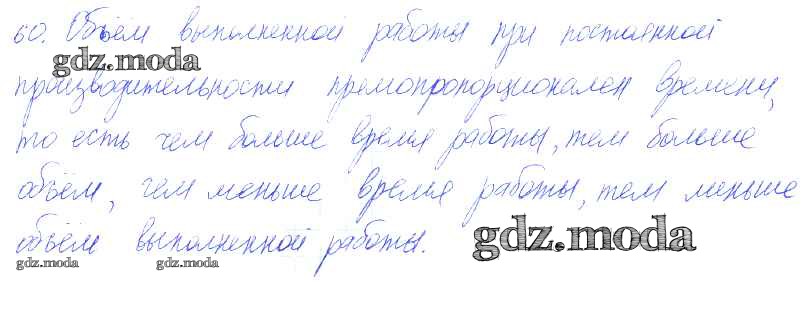 60. Объём выполненной работы при постоянной
gdz.moda
производительности прямопропорционален времени,
то есть чем больше время работы, тем больше
объём, чем меньше время работы, тем меньше
объём выполненной работы.
gdz.moda
gdz.moda gdz.moda